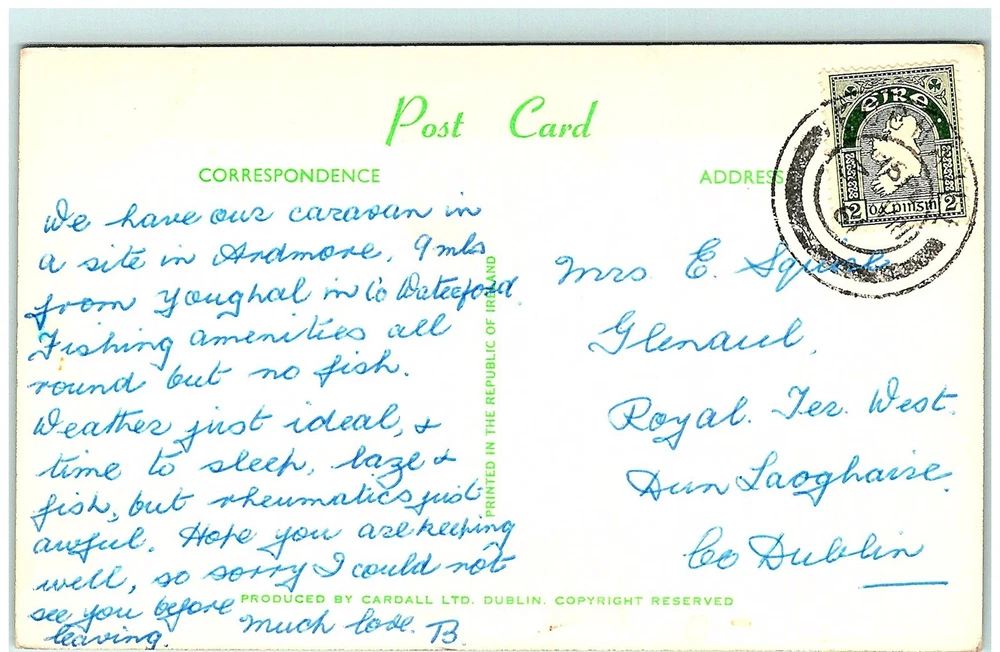 Post Card
CORRESPONDENCE
ADDRESS
éire
2 2
We have our caravan in
a site in Ardmore, 9 mls
from Youghal in Co Waterford.
Fishing amenities all
round but no fish.
Weather just ideal, &
time to sleep, laze &
fish, but rheumatics just
awful. Hope you are keeping
well, so sorry I could not
see you before
leaving.
Much love. B.
PRINTED IN THE REPUBLIC OF IRELAND
Mrs E.
Glenaul,
Royal. Ter. West.
Dun Laoghaire.
Co Dublin
PRODUCED BY CARDALL LTD. DUBLIN. COPYRIGHT RESERVED